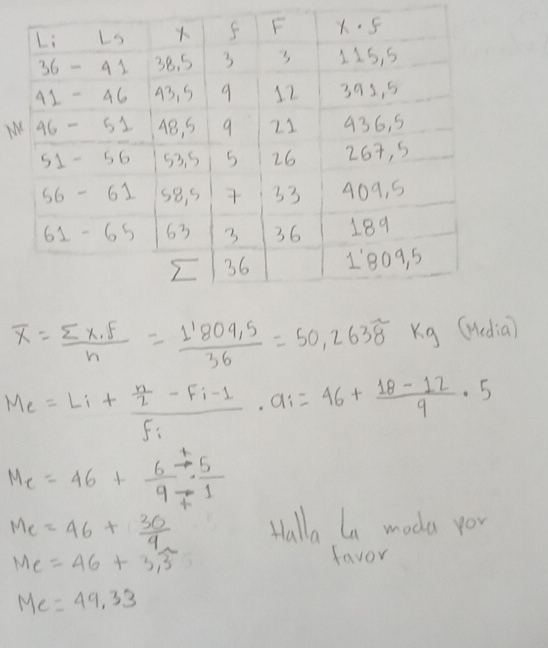 Li Ls X f F X · f
36 - 41 38,5 3 3 115,5
41 - 46 43,5 9 12 391,5
Me 46 - 51 48,5 9 21 436,5
51 - 56 53,5 5 26 267,5
56 - 61 58,5 7 33 409,5
61 - 65 63 3 36 189
Σ 36 1'809,5
X̄ = Σx.f / n = 1'809,5 / 36 = 50,2638̑ Kg (Media)
Me = Li + (n/2 - Fi-1) / fi . ai = 46 + (18 - 12) / 9 · 5
Me = 46 + 6/9 · 5/1
Me = 46 + 30/9
Me = 46 + 3,3̑
Me = 49,33
Halla la moda por
favor